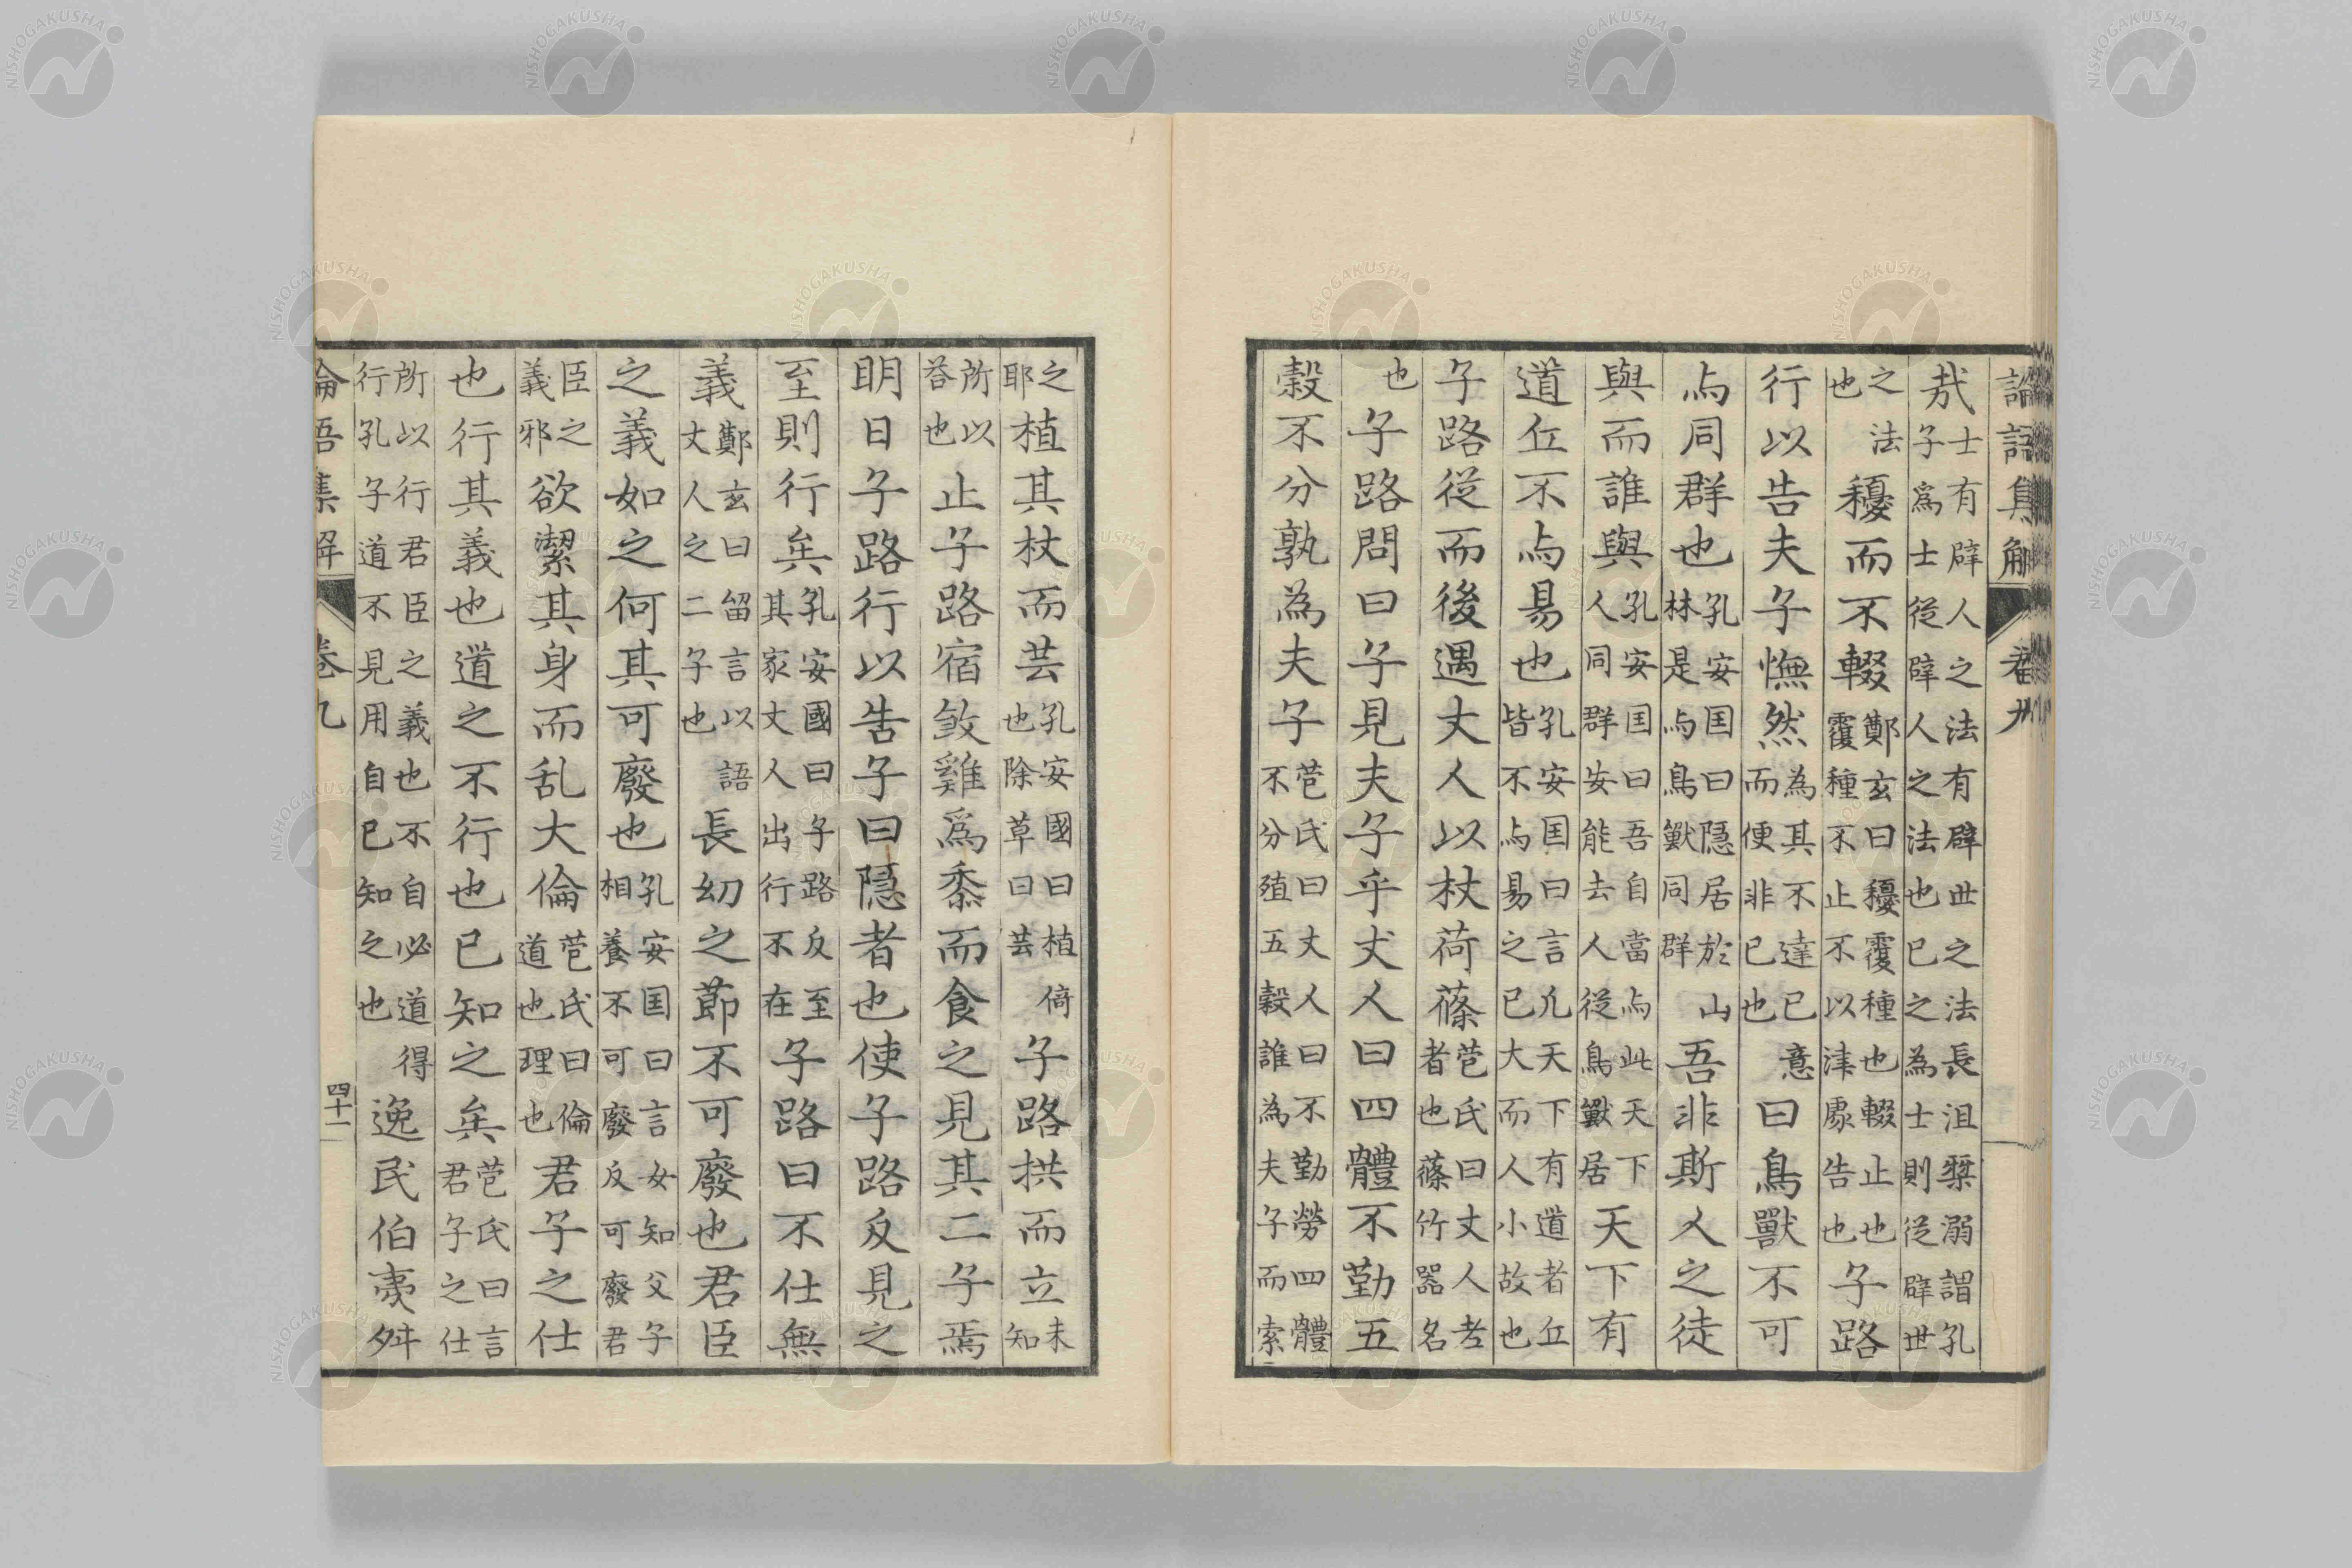 論語集解 卷九
哉士有辟人之法有辟世之法長沮桀溺謂孔子爲士從辟人之法也已之為士則從辟世
之法也耰而不輟鄭玄曰耰覆種也輟止也覆種不止不以津處告也子路
行以告夫子憮然為其不達已意而便非已也曰鳥獸不可
与同群也孔安囯曰隠居於山林是与鳥獣同群吾非斯人之徒
與而誰與孔安囯曰吾自當与此天下人同群安能去人從鳥獣居天下有
道丘不与易也孔安囯曰言凢天下有道者丘皆不与易之已大而人小故也
子路從而後遇丈人以杖荷蓧苞氏曰丈人老者也蓧竹器名
也子路問曰子見夫子乎丈人曰四體不勤五
穀不分孰為夫子苞氏曰丈人曰不勤勞四體不分殖五穀誰為夫子而索
之耶植其杖而芸孔安國曰植倚也除草曰芸子路拱而立未知
所以荅也止子路宿殺雞爲黍而食之見其二子焉
明日子路行以告子曰隠者也使子路反見之
至則行矣孔安國曰子路反至其家丈人出行不在子路曰不仕無
義鄭玄曰留言以語丈人之二子也長幼之節不可廢也君臣
之義如之何其可廢也孔安囯曰言女知父子相養不可廢反可廢君
臣之義邪欲潔其身而乱大倫苞氏曰倫道也理也君子之仕
也行其義也道之不行也已知之矣苞氏曰言君子之仕
所以行君臣之義也不自必道得行孔子道不見用自已知之也逸民伯夷舛
論語集解 卷九 四十一